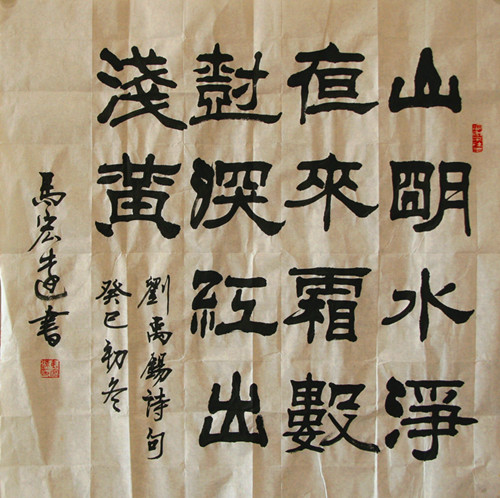 山明水淨
夜來霜數
樹深紅出
淺黃
劉禹錫詩句
癸巳初冬
馬宏達書